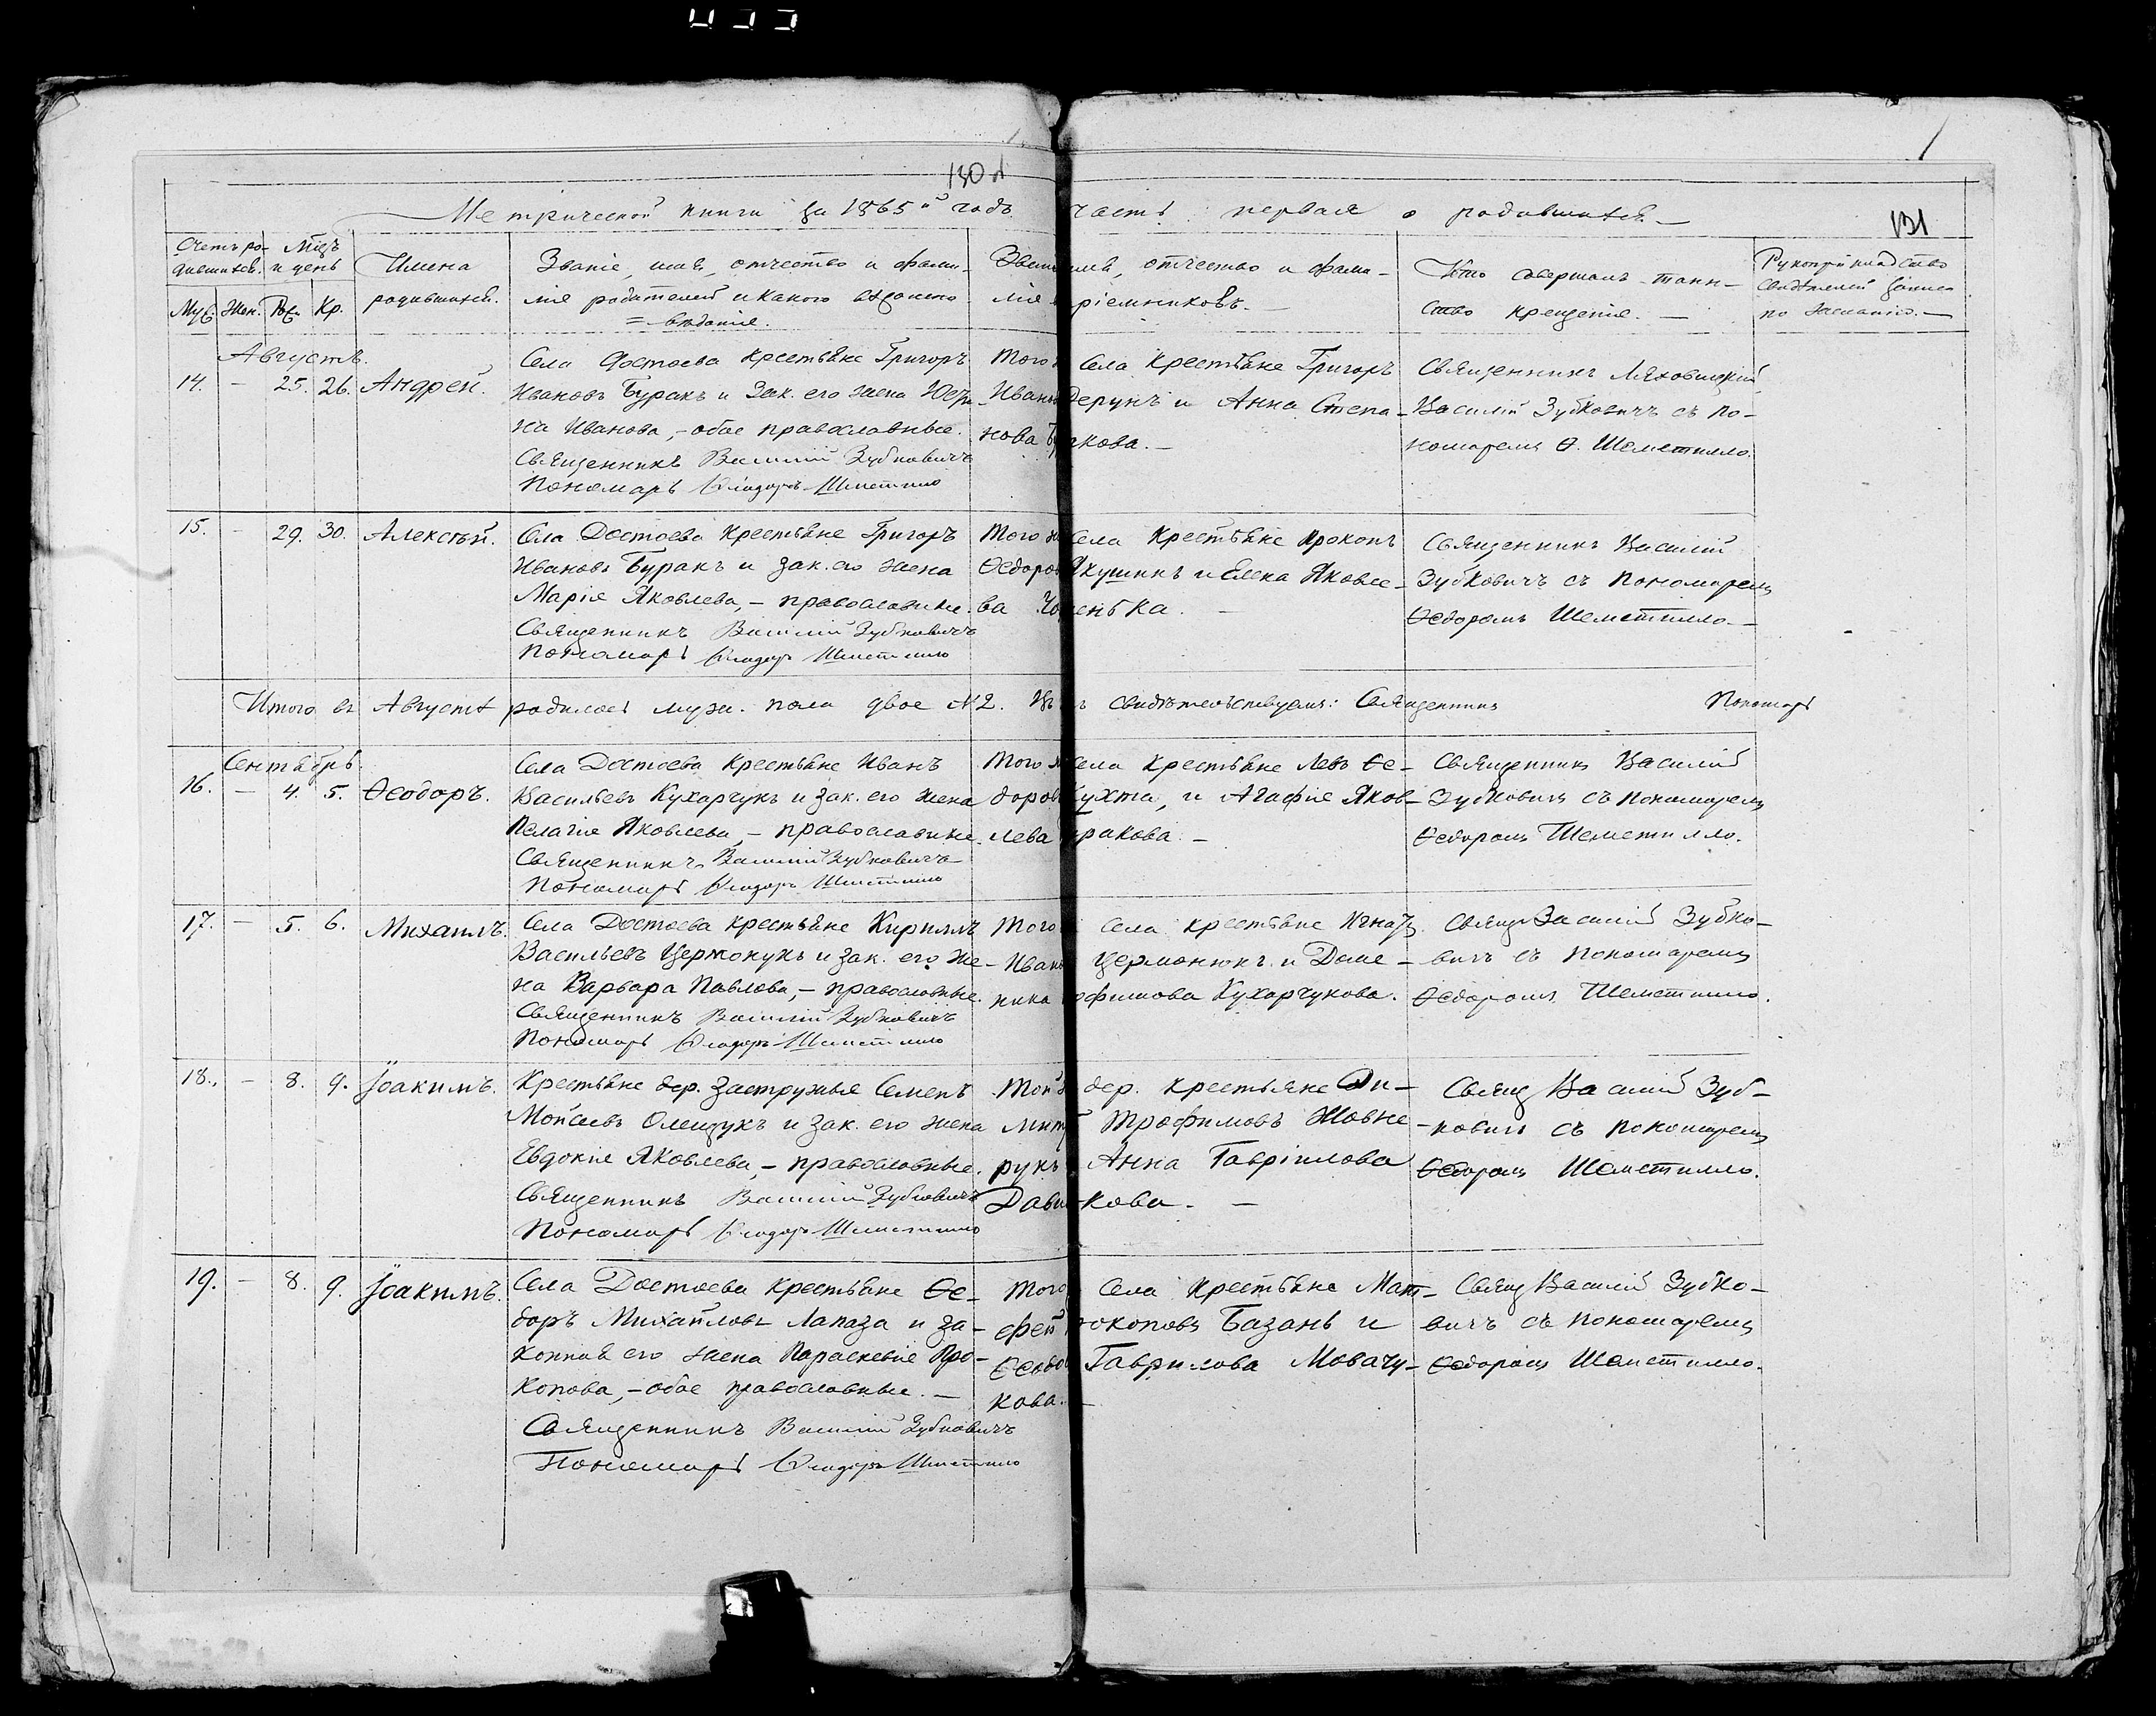 130 об
131
Метрической книги за 1865й годъ часть первая о родившихся.—
Счетъ ро- Мцъ Имена Званіе, имя, отчество и фами- Званіе имя, отчество и фами- Кто совершалъ таин- Рукоприкладство
дившихся. и день родившихся. лія родителей и какого вѣроисно- лія пріемниковъ.— ство крещенія.— свидѣтелей записи
Муж. Жен. Рож. Кр. =вѣданія. по желанію.—
Августъ.
14. — 25. 26. Андрей.
Села Достоева крестьяне Григоръ
Ивановъ Буракъ и зак. его жена
на Иванова,—обое православные.
Священникъ Василій Зубковичъ
Пономарь Ѳеодоръ Шеметилло
Того села крестьяне Григоръ
Ивановъ и Анна Степа-
нова
Священникъ Ляховицкій
Василій Зубковичъ съ по-
номаремъ Ѳ. Шеметилло.
15. — 29. 30. Алексѣй.
Села Достоева крестьяне Григоръ
Ивановъ Буракъ и зак. его жена
Марія Яковлева,—православные.
Священникъ Василій Зубковичъ
Пономарь Ѳеодоръ Шеметилло
Того села крестьяне Прокопъ
Ѳедоровъ Якушикъ и Елена Яковле-
ва
Священникъ Василій
Зубковичъ съ пономаремъ
Ѳедоромъ Шеметилло.—
Итого въ Августѣ родилось муж. пола двое №2. свидѣтельствуемъ: Священникъ Пономарь
Сентябрь.
16. — 4. 5. Ѳеодоръ.
Села Достоева крестьяне Иванъ
Васильевъ Кухарчукъ и зак. его жена
Пелагія Яковлева,—православные.
Священникъ Василій Зубковичъ
Пономарь Ѳеодоръ Шеметилло
Того села крестьяне Левъ Ѳе-
доровъ Кухта, и Агафія Яков-
лева Буракова.—
Священникъ Василій
Зубковичъ съ пономаремъ
Ѳедоромъ Шеметилло.
17. — 5. 6. Михаилъ.
Села Достоева крестьяне Кириллъ
Васильевъ и зак. его же-
на Варвара Павлова,—православные.
Священникъ Василій Зубковичъ
Пономарь Ѳеодоръ Шеметилло
Того села крестьяне Игнатъ
Ивановъ и Доме-
ника Кухарчукова.
Свящ Василій Зубко-
вичъ съ пономаремъ
Ѳедоромъ Шеметилло.
18. — 8. 9. Іоакимъ.
Крестьяне дер. Застружья Семенъ
Мойсеевъ Олещукъ и зак. его жена
Евдокія Яковлева,—православные.
Священникъ Василій Зубковичъ
Пономарь Ѳеодоръ Шеметилло
Той дер. крестьяне Ди-
митрій Трофимовъ Жовне-
рукъ Анна Гавріилова
кова.—
Свящ Василій Зуб-
ковичъ съ пономаремъ
Ѳедоромъ Шеметилло.
19. — 8. 9. Іоакимъ.
Села Достоева крестьяне Ѳе-
доръ Михайловъ Лапаза и за-
конная его жена Параскевія Про-
копова,—обое православные.—
Священникъ Василій Зубковичъ
Пономарь Ѳеодоръ Шеметилло
Того села крестьяне Мат-
фей Прокоповъ Базанъ и
Гаврилова Мовчу-
кова.—
Свящ Василій Зубко-
вичъ съ пономаремъ
Ѳедоромъ Шеметилло.